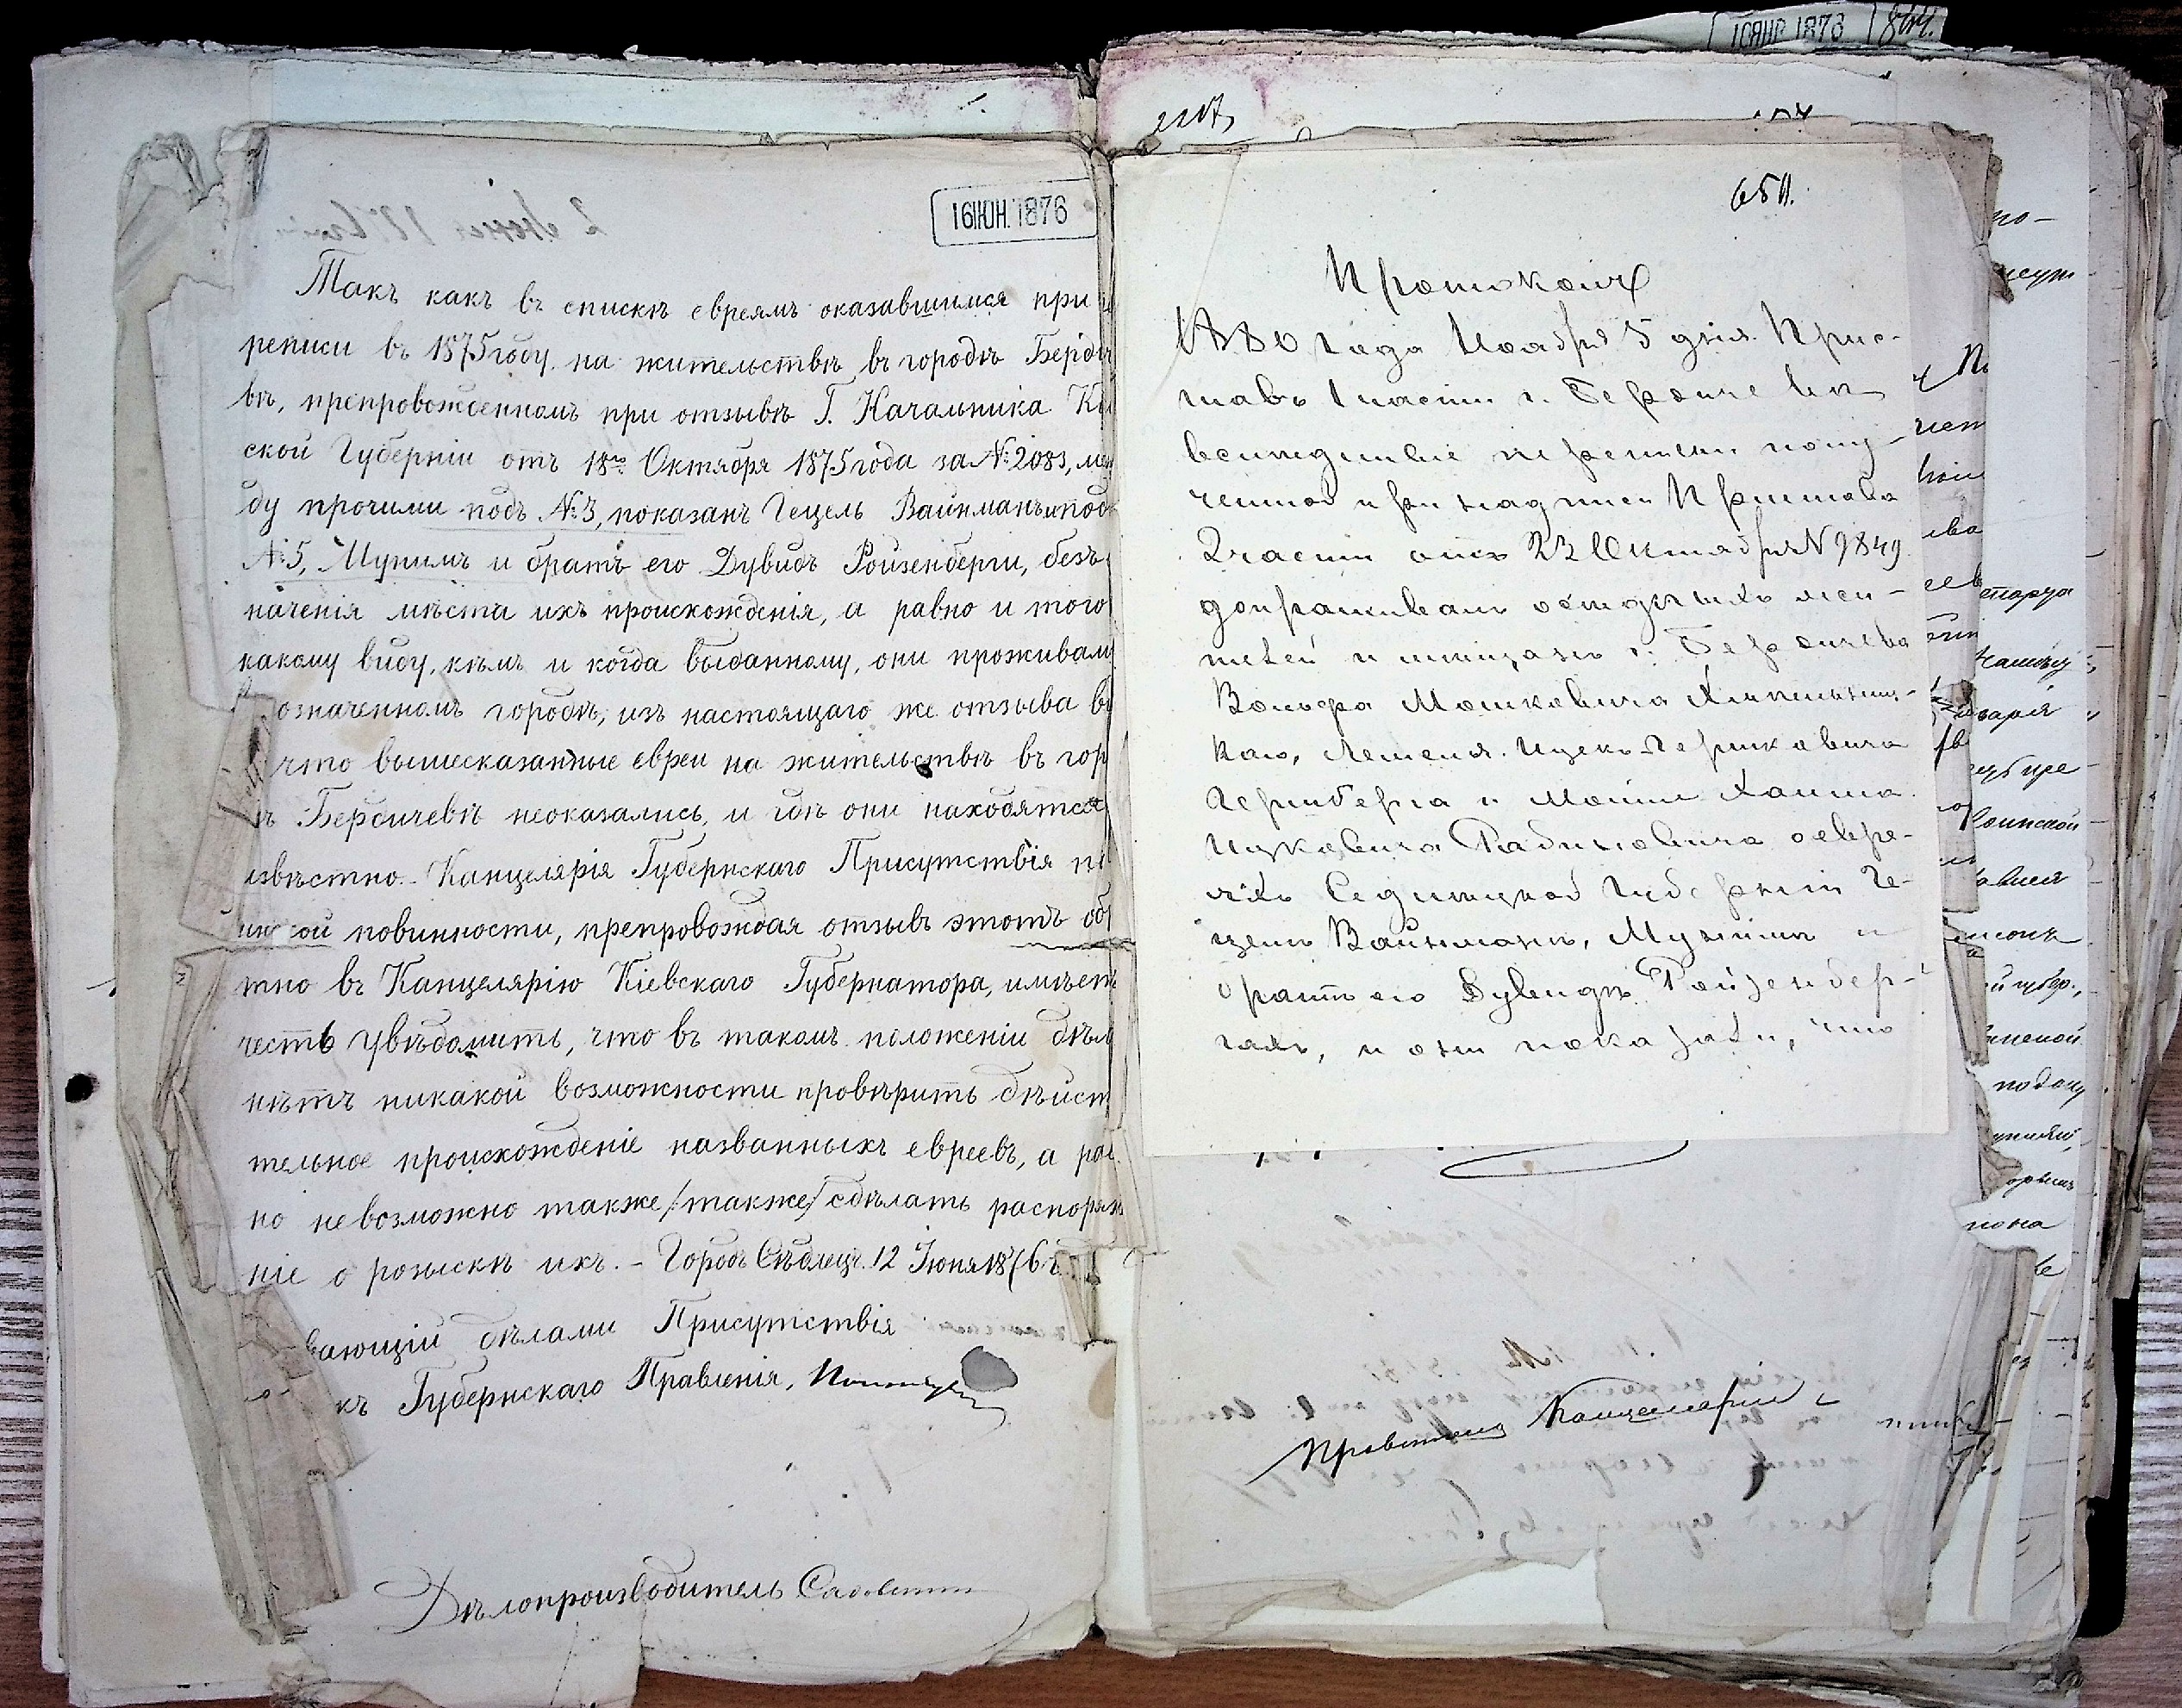 16 ЮН. 1876
Такъ какъ въ спискѣ евреямъ оказавшимся при
реписи въ 1875 году на жительствѣ въ городѣ Берди
вѣ, препровожденномъ при отзывѣ Г. Начальника Кі
ской Губерніи отъ 18го Октября 1875 года за № 2083, меж
ду прочими подъ № 3, показанъ Гецель Вайнманъ и подъ
№ 5, Мунимъ и братъ его Дувидъ Ройзенберги, безъ
наченія мѣста ихъ происхожденія, а равно и того
какому виду, кѣмъ и когда выданному, они проживали
означенномъ городѣ, изъ настоящаго же отзыва ви
что вышесказанные евреи на жительствѣ въ гор
ѣ Бердичевѣ неоказались, и гдѣ они находятся
извѣстно. - Канцелярія Губернскаго Присутствія по
инской повинности, препровождая отзывъ этотъ об
тно въ Канцелярію Кіевскаго Губернатора, имѣетъ
честь увѣдомить, что въ такомъ положеніи дѣла
нѣтъ никакой возможности провѣрить дѣйст
тельное происхожденіе названныхъ евреевъ, а рав
но невозможно также /также/ сдѣлать распоряж
ніе о розыскѣ ихъ. - Городъ Сѣдлецъ. 12 Іюня 1876 г.
вающій дѣлами Присутствія
къ Губернскаго Правленія,
Дѣлопроизводитель
16 ЯНВ 1876
Протоколъ
1880 года Ноября 5 дня. Прис-
тавъ 1 части г. Бердичева
вслѣдствіе переписки полу-
ченной при надписи Пристава
2 части отъ 22 Октября № 9849
допрашивалъ осѣдлыхъ жи-
телей и мѣщанъ г. Бердичева
Вольфа Мошковича
Ицека Гершковича
Герцберга и Хаима
Ицковича Рабиновича о евре-
яхъ Седлецкой Губерніи Ге-
целѣ Вайнманѣ, Мунимѣ и
братѣ его Дувидѣ Ройзенбер-
гахъ, и они показали, что
Правителю Канцеляріи